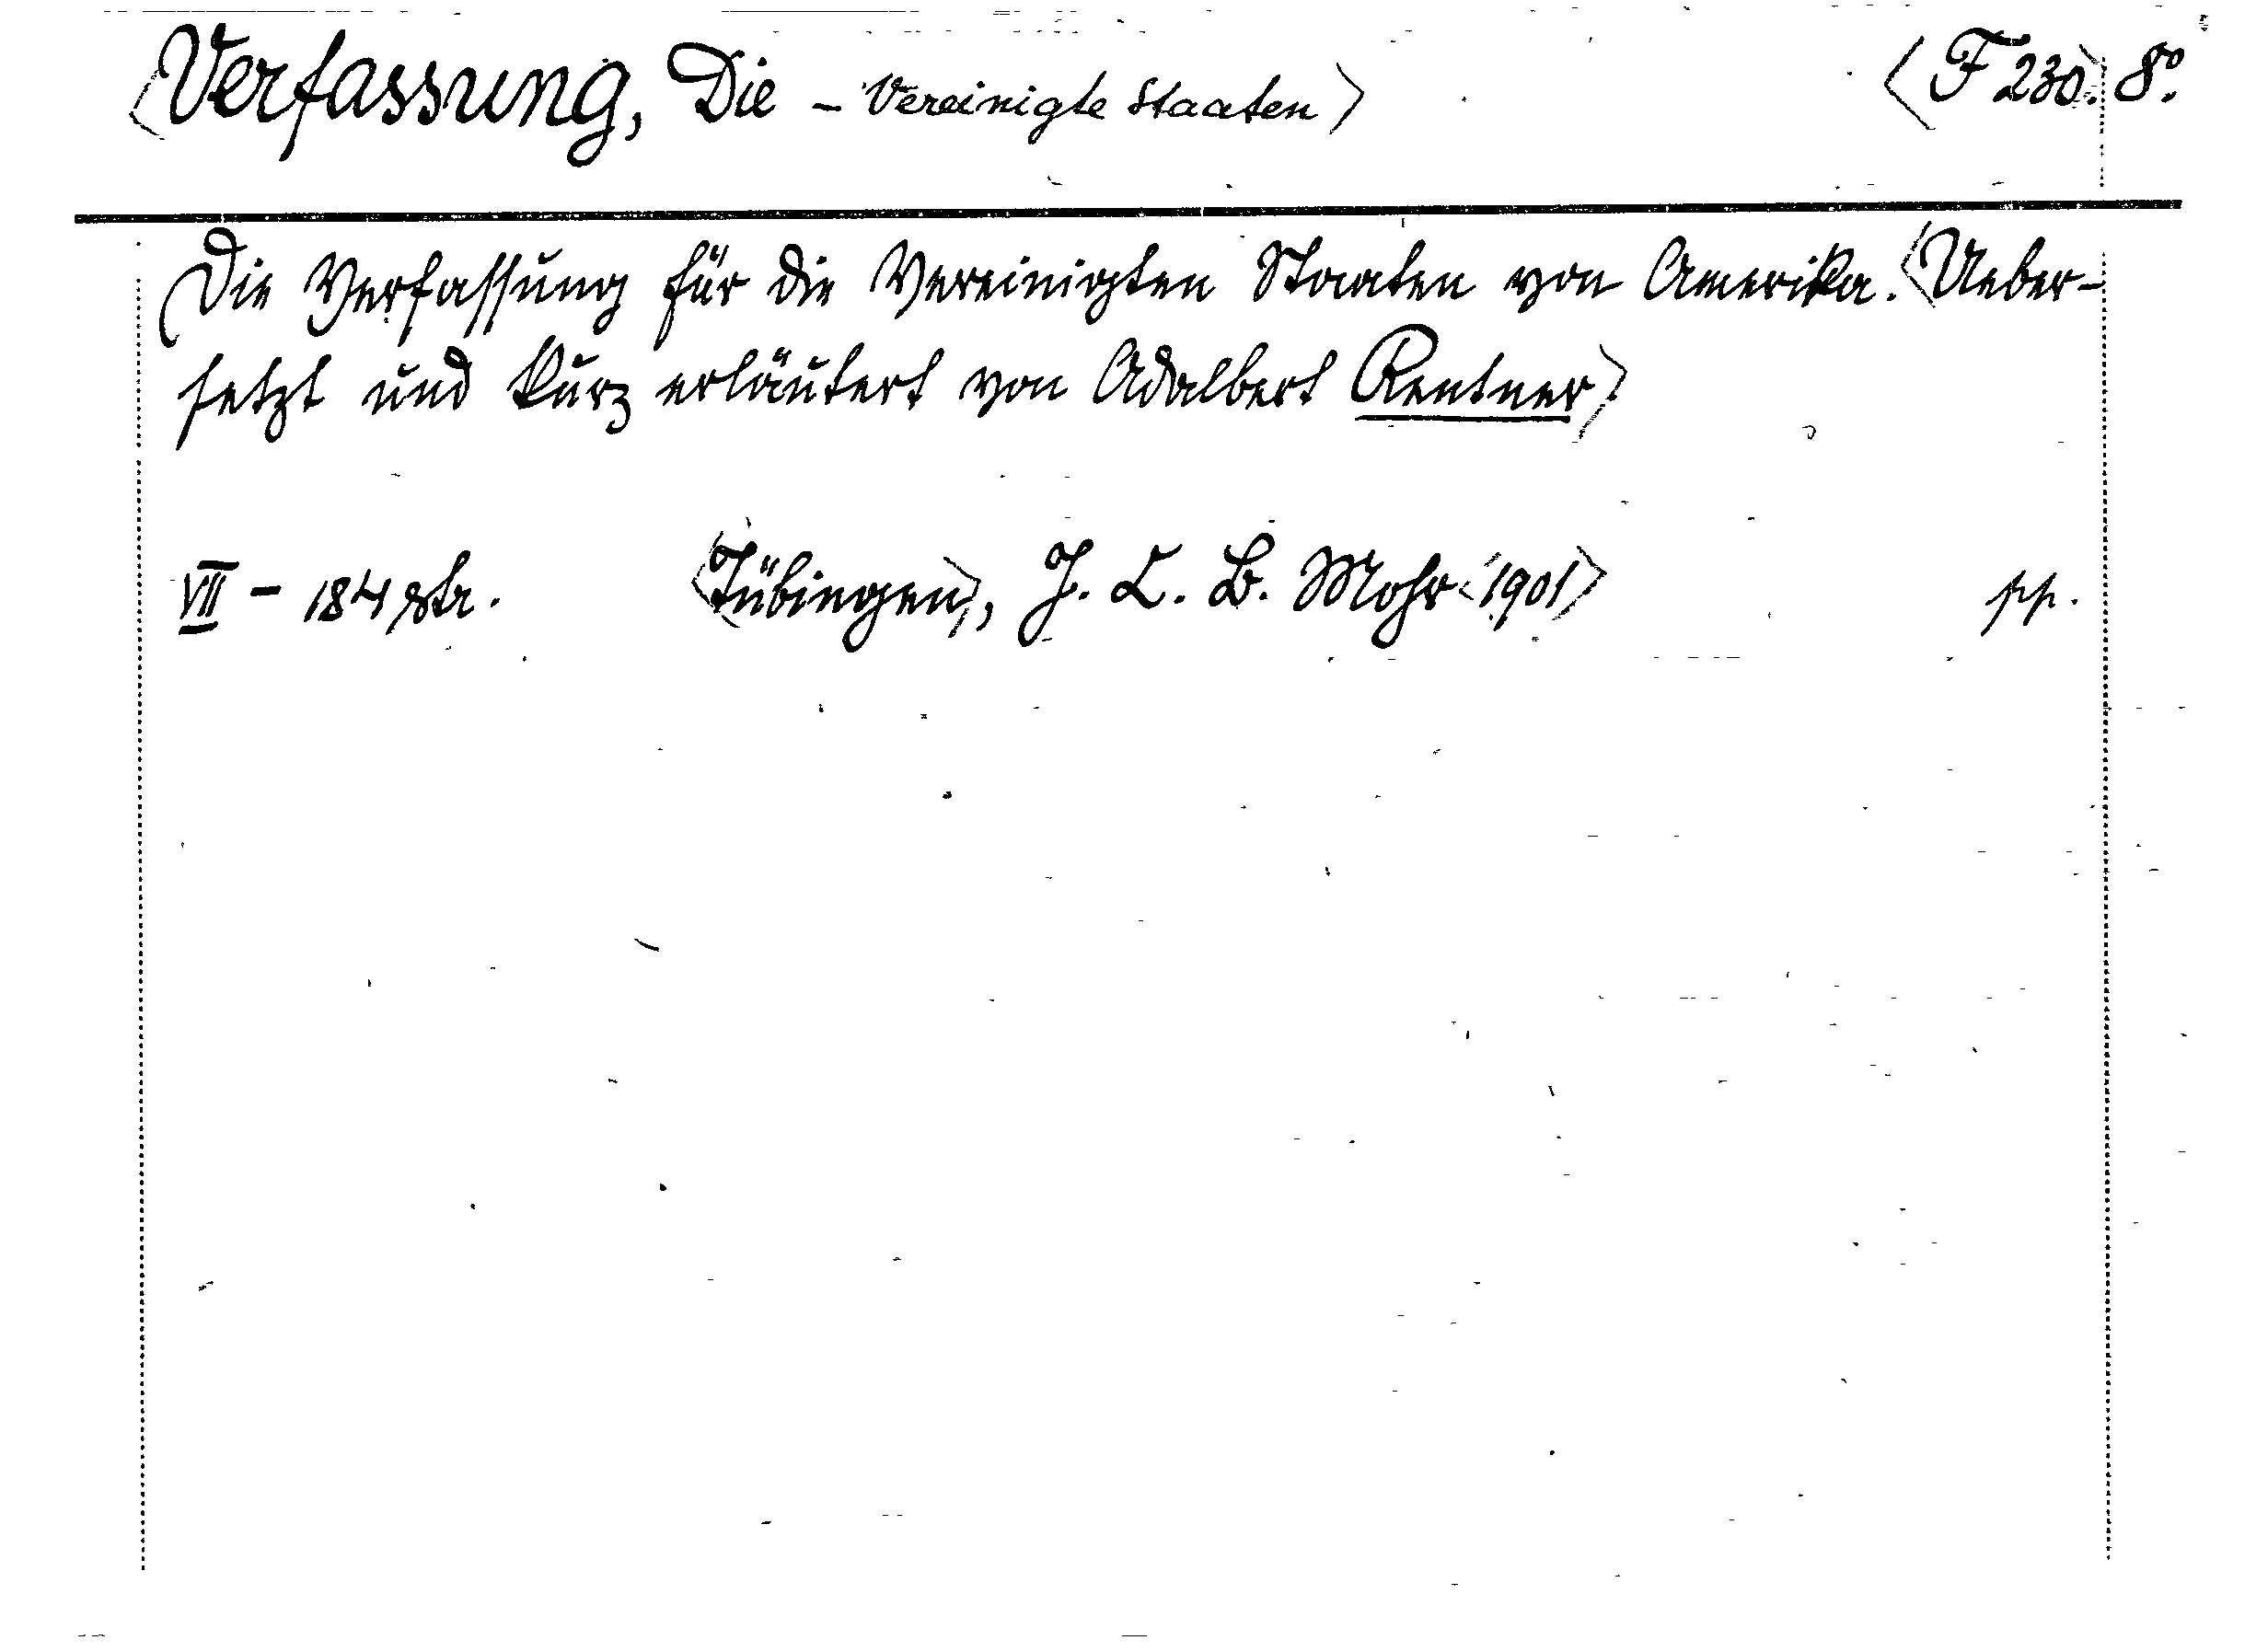 ⟨Verfassung, Die – Vereinigte Staaten⟩ ⟨F 230.⟩ 8°.
Die Verfassung für die Vereinigten Staaten von Amerika. ⟨Ueber-
setzt und kurz erläutert von Adalbert Rentner⟩
VII – 184 str. ⟨Tübingen⟩, J. C. B. Mohr ⟨1901⟩ pp.